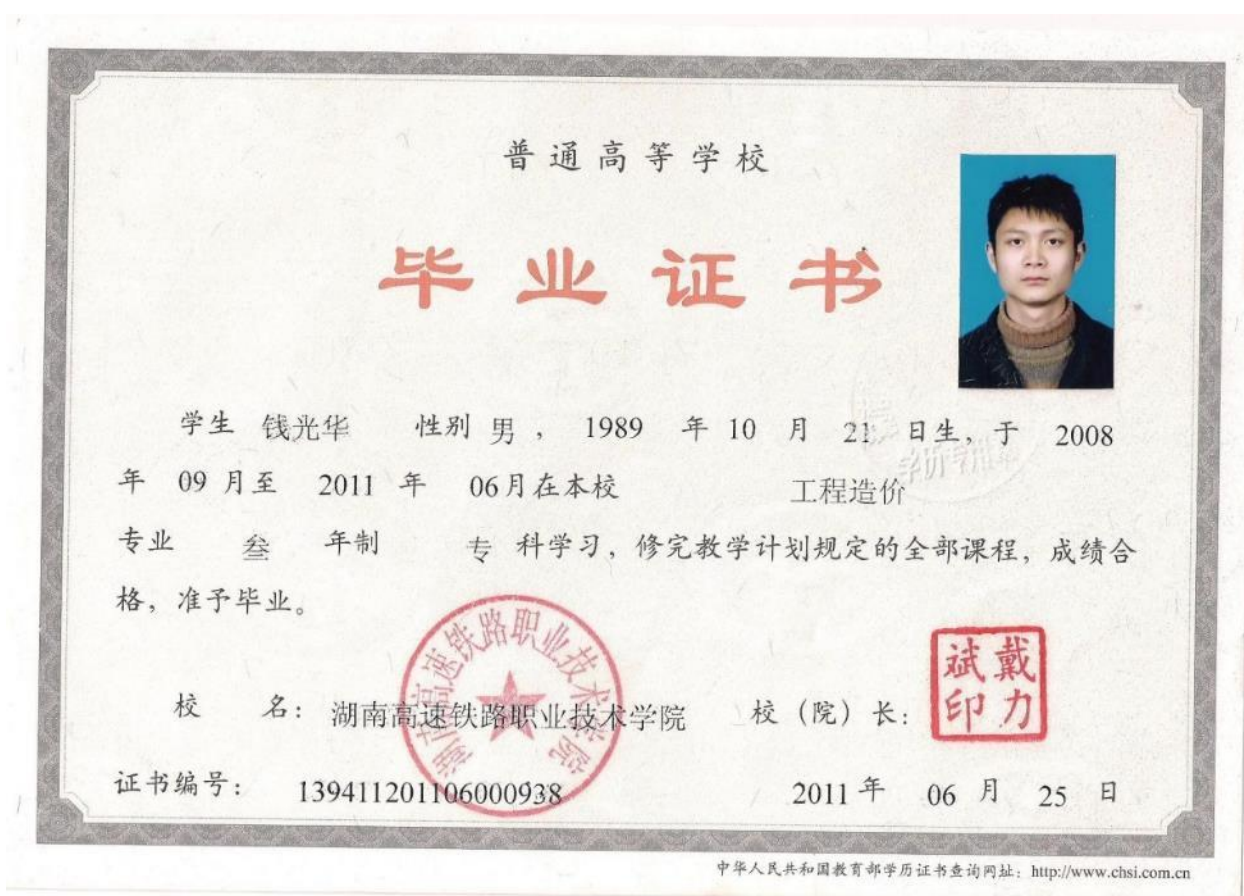 普通高等学校
毕业证书
学生 钱光华 性别 男 , 1989 年 10 月 21 日生，于 2008
年 09 月至 2011 年 06月在本校 工程造价
专业 叁 年制 专 科学习，修完教学计划规定的全部课程，成绩合
格，准予毕业。
湖南高速铁路职业技术学院
戴力斌印
校 名： 湖南高速铁路职业技术学院 校（院）长：
证书编号： 139411201106000938 2011 年 06 月 25 日
中华人民共和国教育部学历证书查询网址：http://www.chsi.com.cn